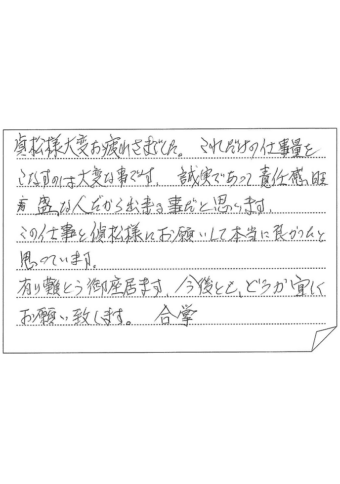 貞松様大変お疲れさまでした。これだけの仕事量を
こなすのは大変な事です。誠実であって責任感、旺
盛な人だから出来る事だと思います。
この仕事を偵松様にお願いして本当に良かったと
思っています。
有り難とう御座居ます。今後とも、どうか宜しく
お願い致します。 合掌